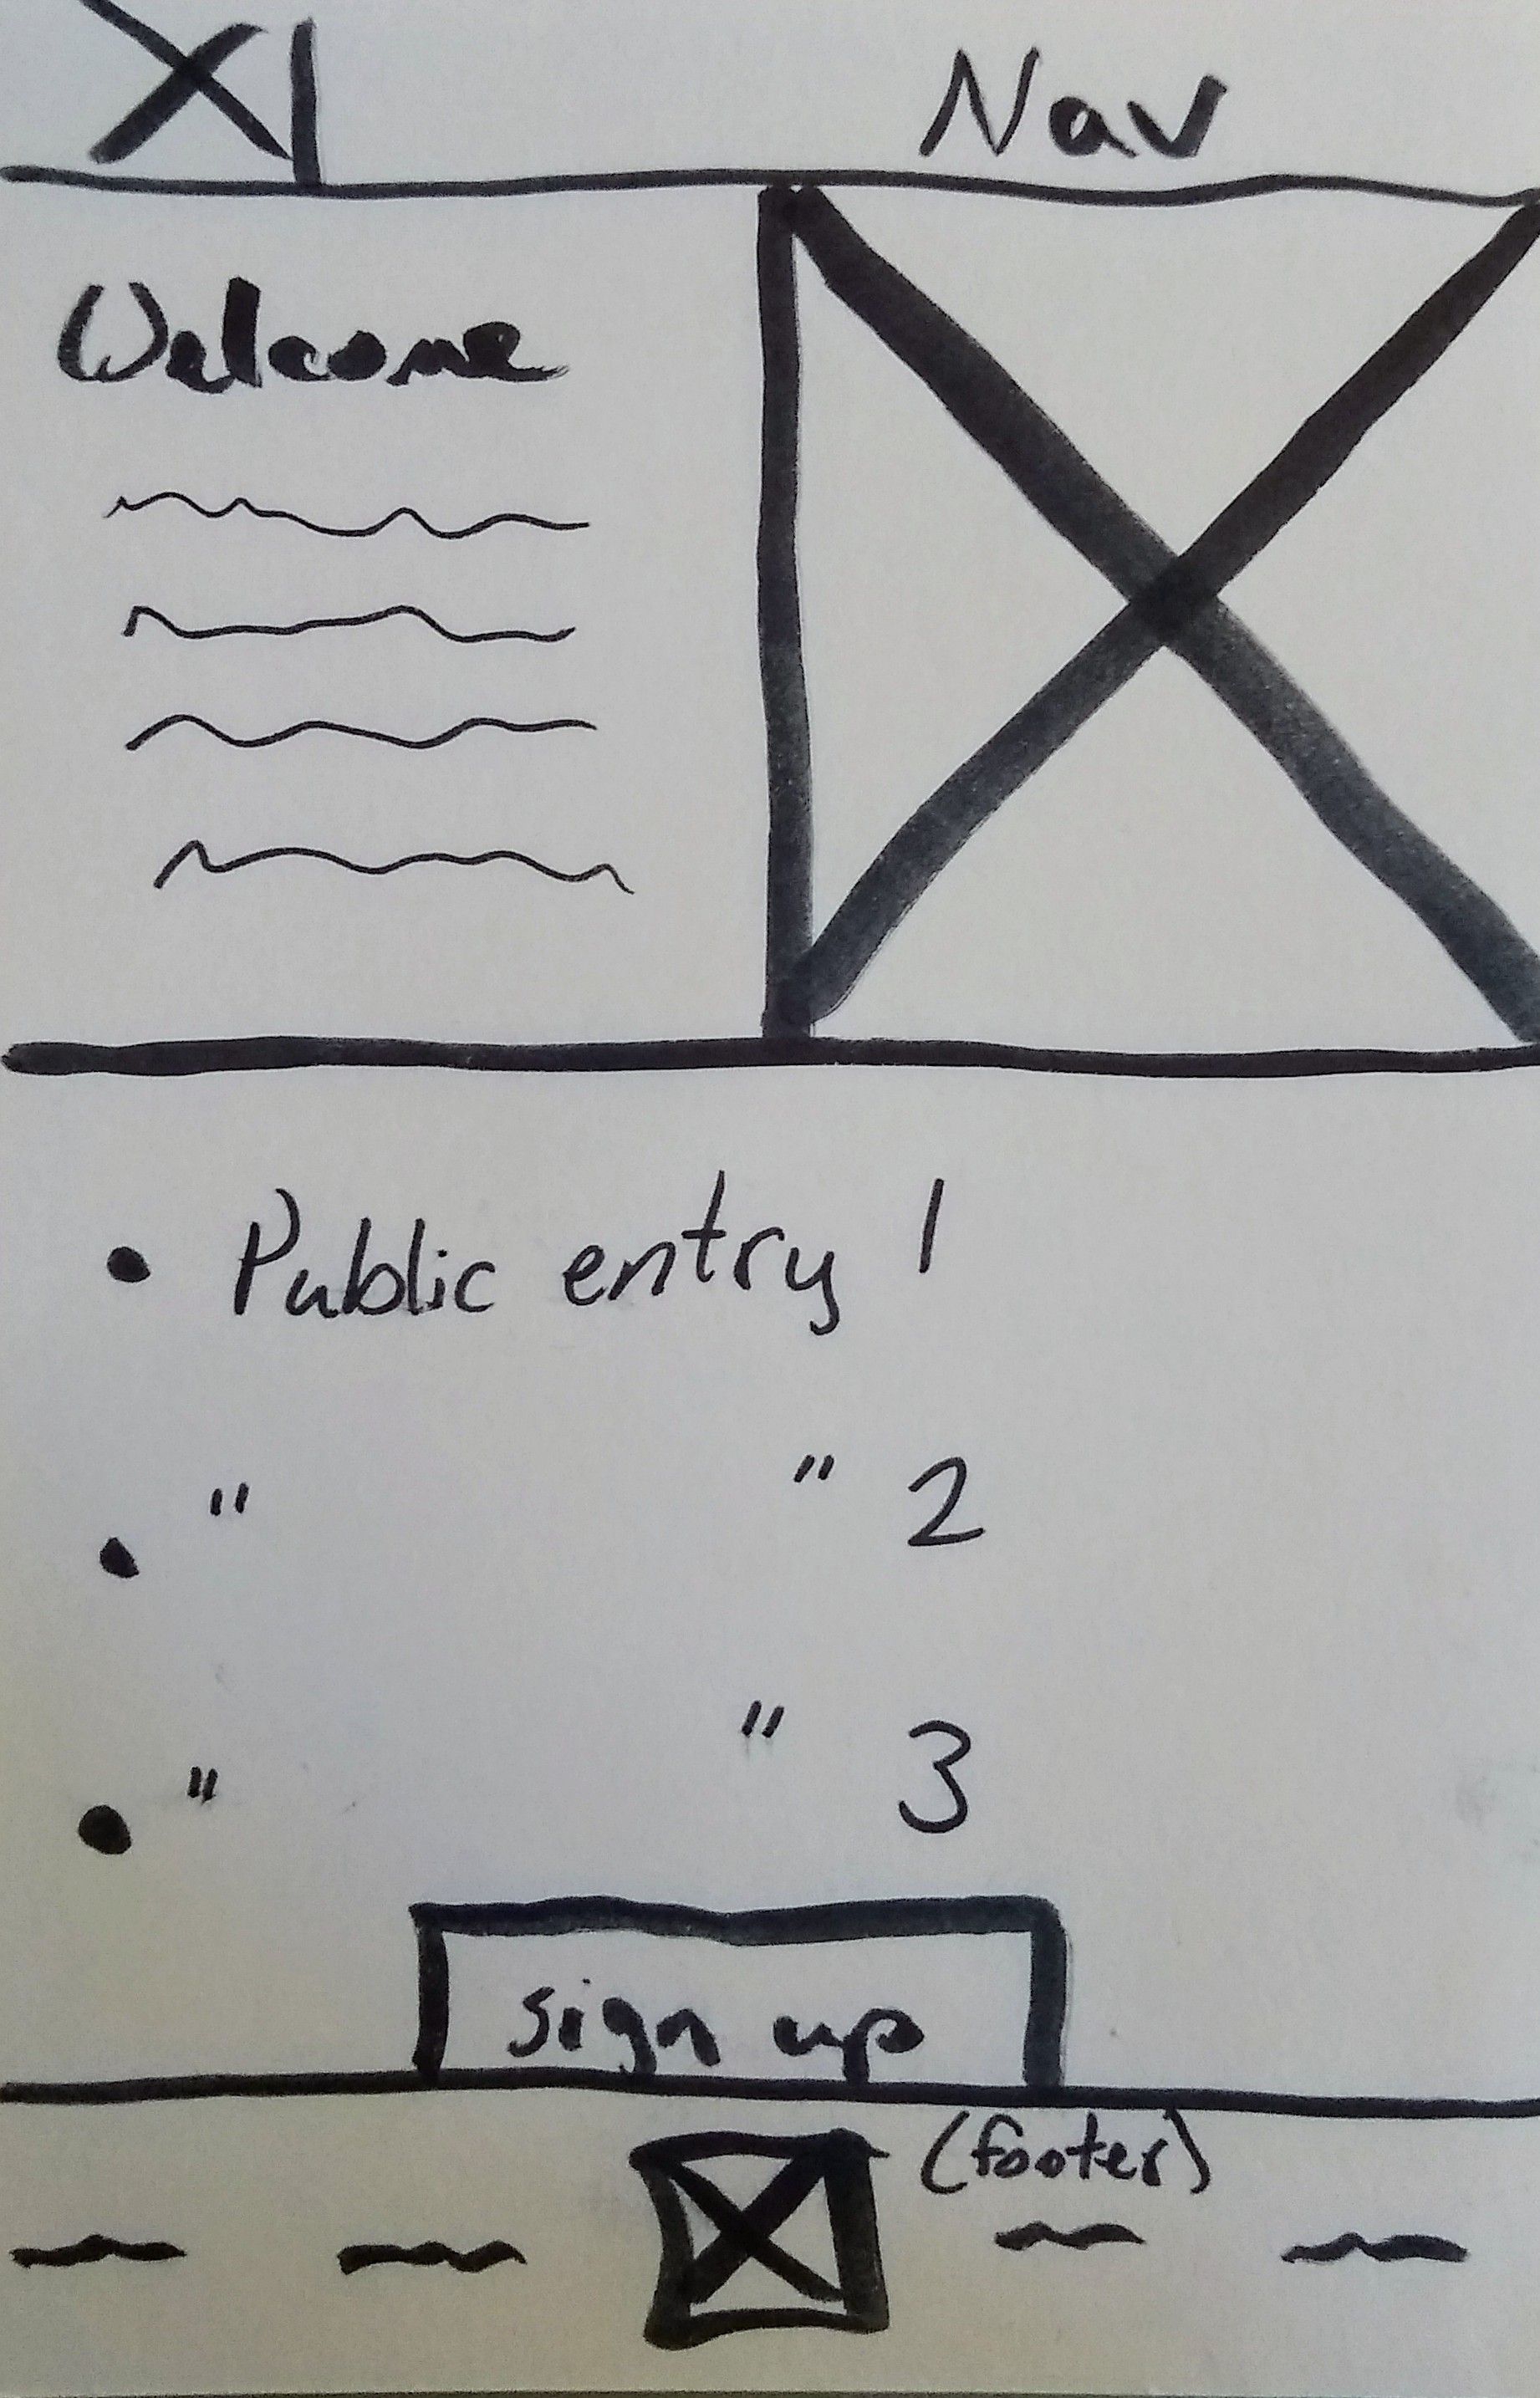 Nav
Welcome
• Public entry 1
• " " 2
• " " 3
sign up
(footer)